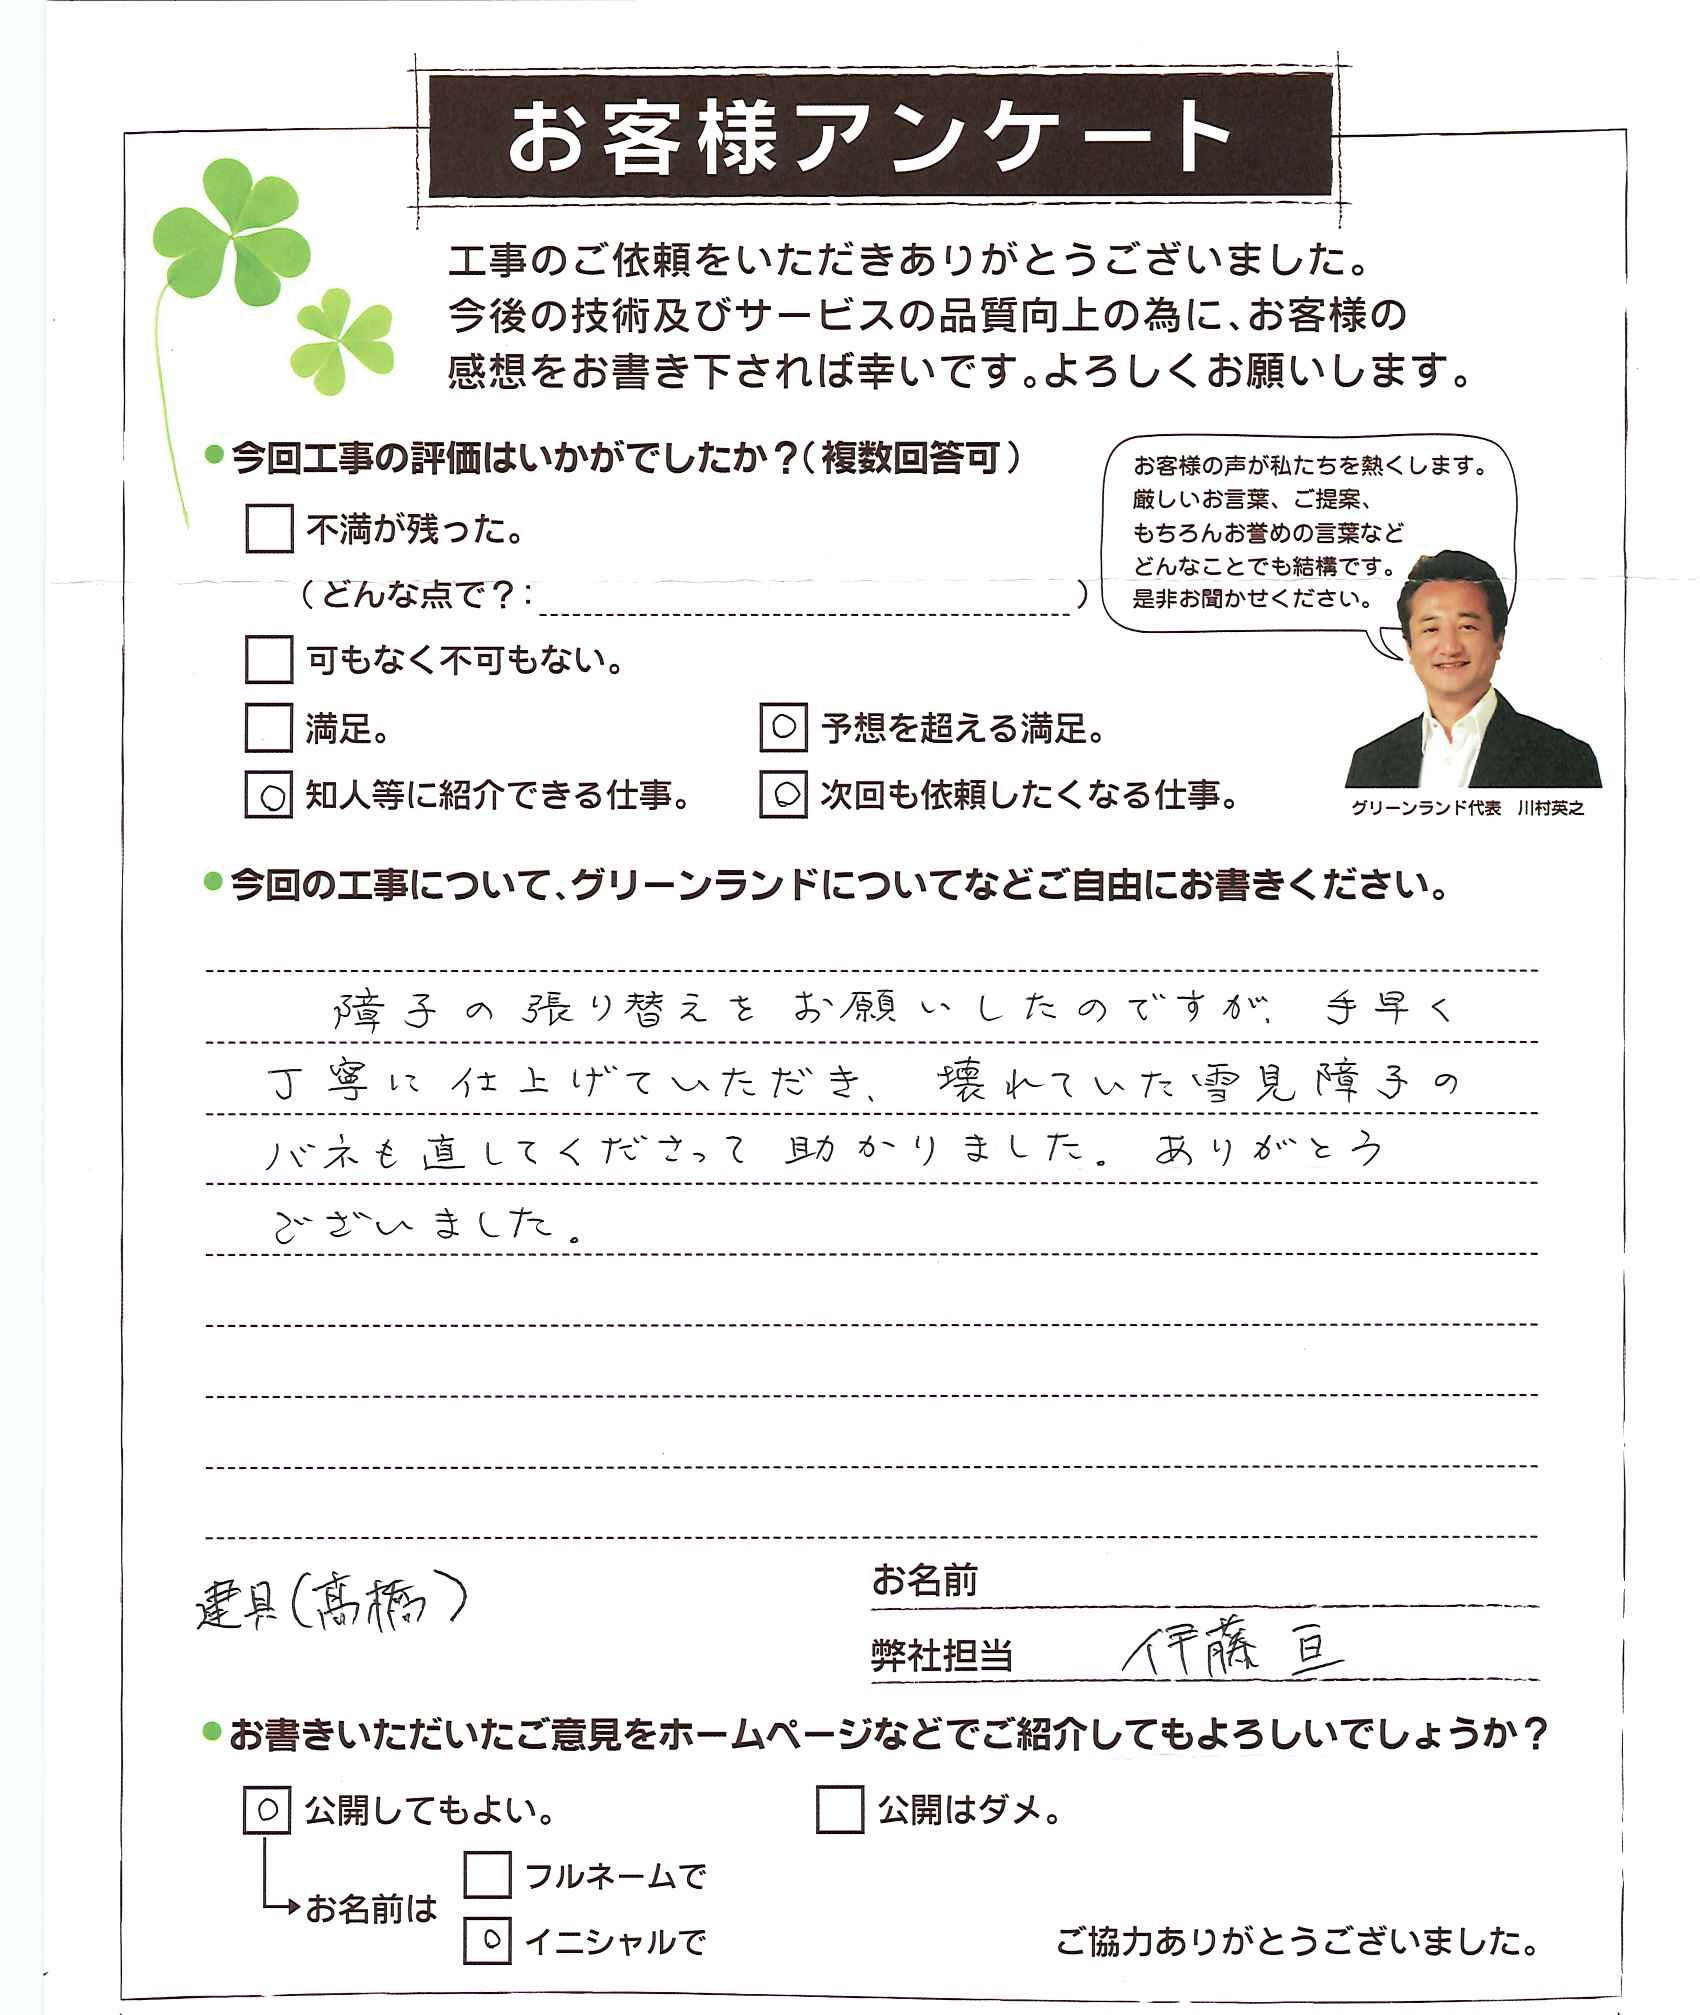 お客様アンケート
工事のご依頼をいただきありがとうございました。
今後の技術及びサービスの品質向上の為に、お客様の
感想をお書き下されば幸いです。よろしくお願いします。
●今回工事の評価はいかがでしたか？（複数回答可）
□ 不満が残った。
（どんな点で？：　　　　）
お客様の声が私たちを熱くします。
厳しいお言葉、ご提案、
もちろんお誉めの言葉など
どんなことでも結構です。
是非お聞かせください。
□ 可もなく不可もない。
□ 満足。
○ 予想を超える満足。
○ 知人等に紹介できる仕事。
○ 次回も依頼したくなる仕事。
グリーンランド代表　川村英之
●今回の工事について、グリーンランドについてなどご自由にお書きください。
障子の張り替えをお願いしたのですが、手早く
丁寧に仕上げていただき、壊れていた雪見障子の
バネも直してくださって助かりました。ありがとう
ございました。
建具（髙橋）
お名前
弊社担当　伊藤 亘
●お書きいただいたご意見をホームページなどでご紹介してもよろしいでしょうか？
○ 公開してもよい。
□ 公開はダメ。
→お名前は
□ フルネームで
○ イニシャルで
ご協力ありがとうございました。